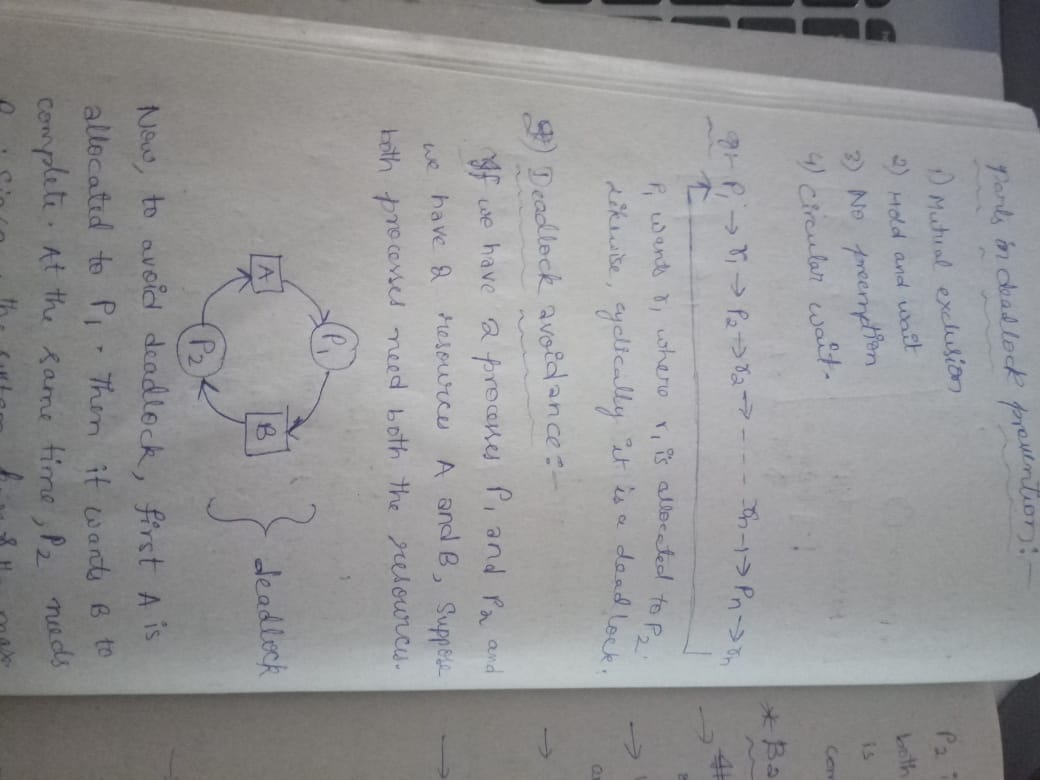 Parts in deadlock prevention:-
1) Mutual exclusion
2) Hold and wait
3) No preemption
4) Circular wait.
P1 → r1 → P2 → r2 → - - - rn-1 → Pn → rn
P1 wants r1 where r1 is allocated to P2.
Likewise, cyclically it is a deadlock.
Deadlock avoidance:-
If we have 2 processes P1 and P2 and
we have 2 resources A and B, Suppose
both processes need both the resources.
A
P1
P2
B
deadlock
Now, to avoid deadlock, first A is
allocated to P1. Then it wants B to
complete. At the same time, P2 needs
the system
P2
both
is
con
* Ba